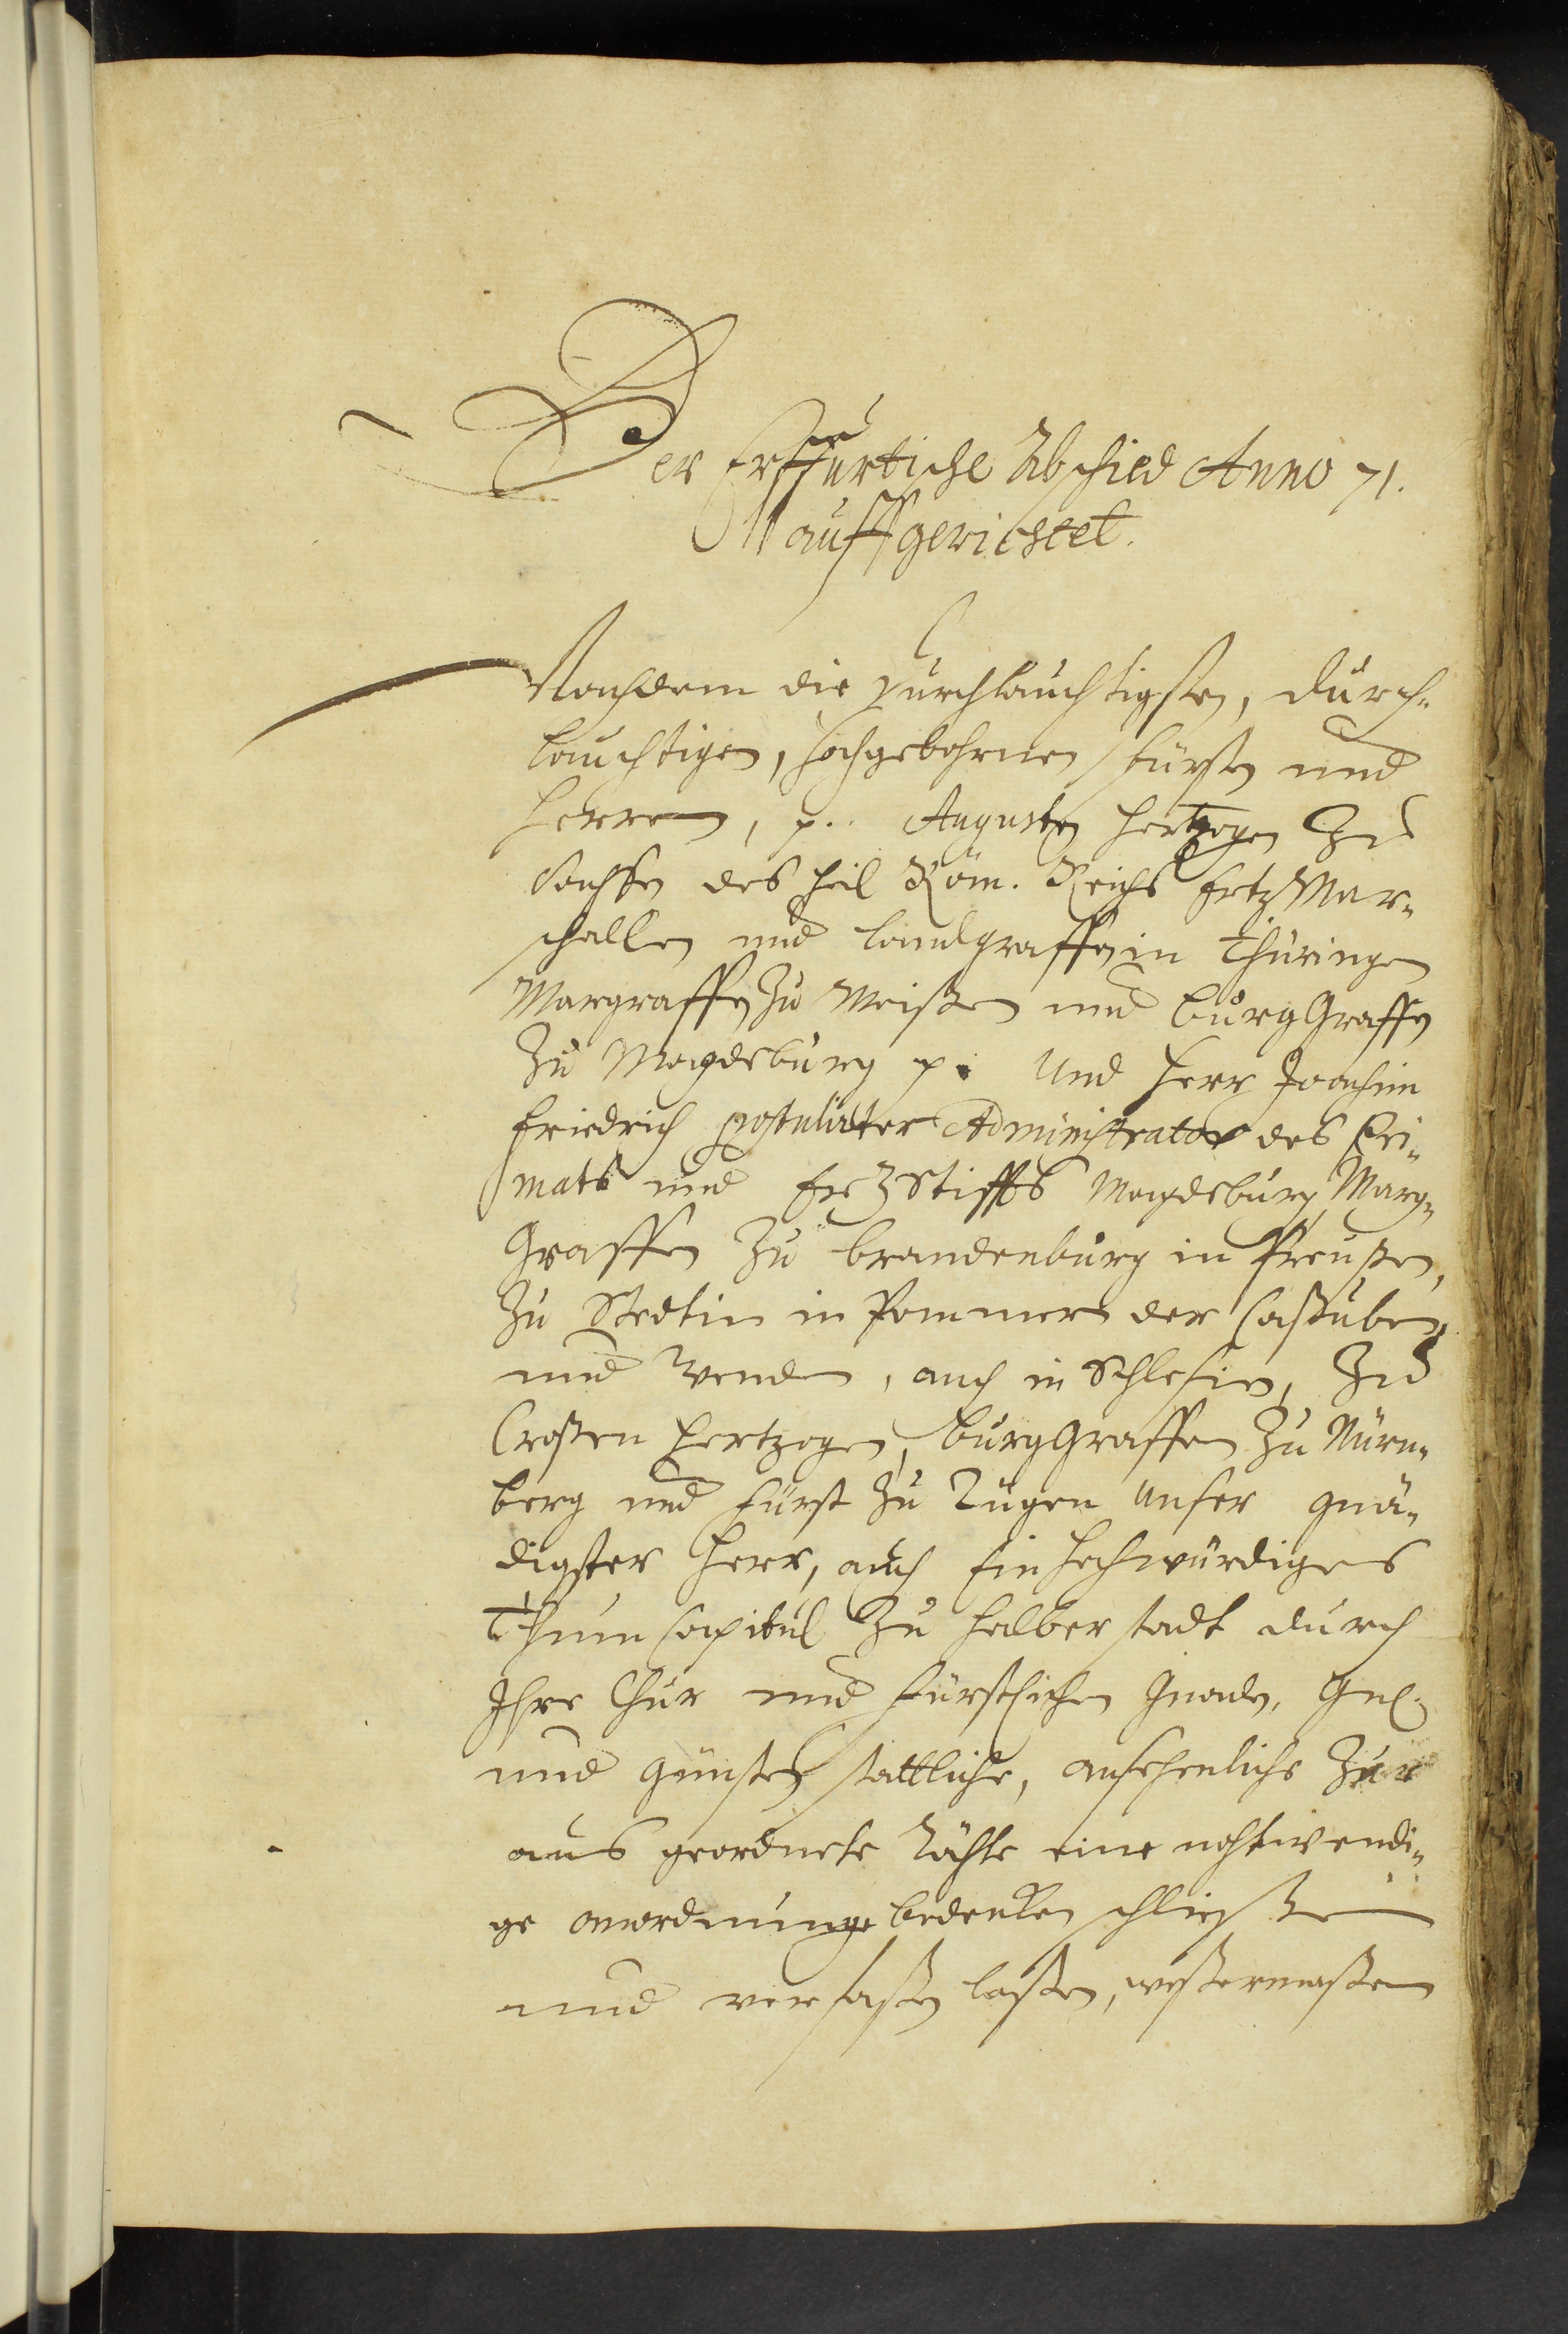 Der Erffurtische Abschied Anno 71.
auffgerichtet.
Nachdem die Durchlauchtigsten, Durch-
lauchtigen, hochgebohrnen Fürsten und
Herren, p. Augusten Hertzogen Zu
Sachßen des heil Röm. Reichs ErtzMar-
schallen und Landgraffen in Thüringen
Margraffen Zu Meißen und BurgGraffen
Zu Magdeburg p. Und Herr Joachim
Friedrich postulirter Administrator des Pri-
mats und ErzStiffts Magdeburg, Marg-
Graffen Zu Brandenburg in Preußen,
Zu Stedtin in Pommern der Caßuben,
und Wenden, auch in Schlesien, Zu
Croßen Hertzogen, BurgGraffen Zu Nürn-
berg und Fürst Zu Rügen unser gnä-
digster Herr, auch Ein Hochwürdiges
Thum Capitul Zu Halberstadt durch
Ihre Chur und Fürstlichen Gnaden,
und Gunsten stattliche, ansehenliche Zur
aus geordnete Räthe eine nohtwendi-
ge anordnunge bedenken schließen
und verfaßen laßen, weßermaßen